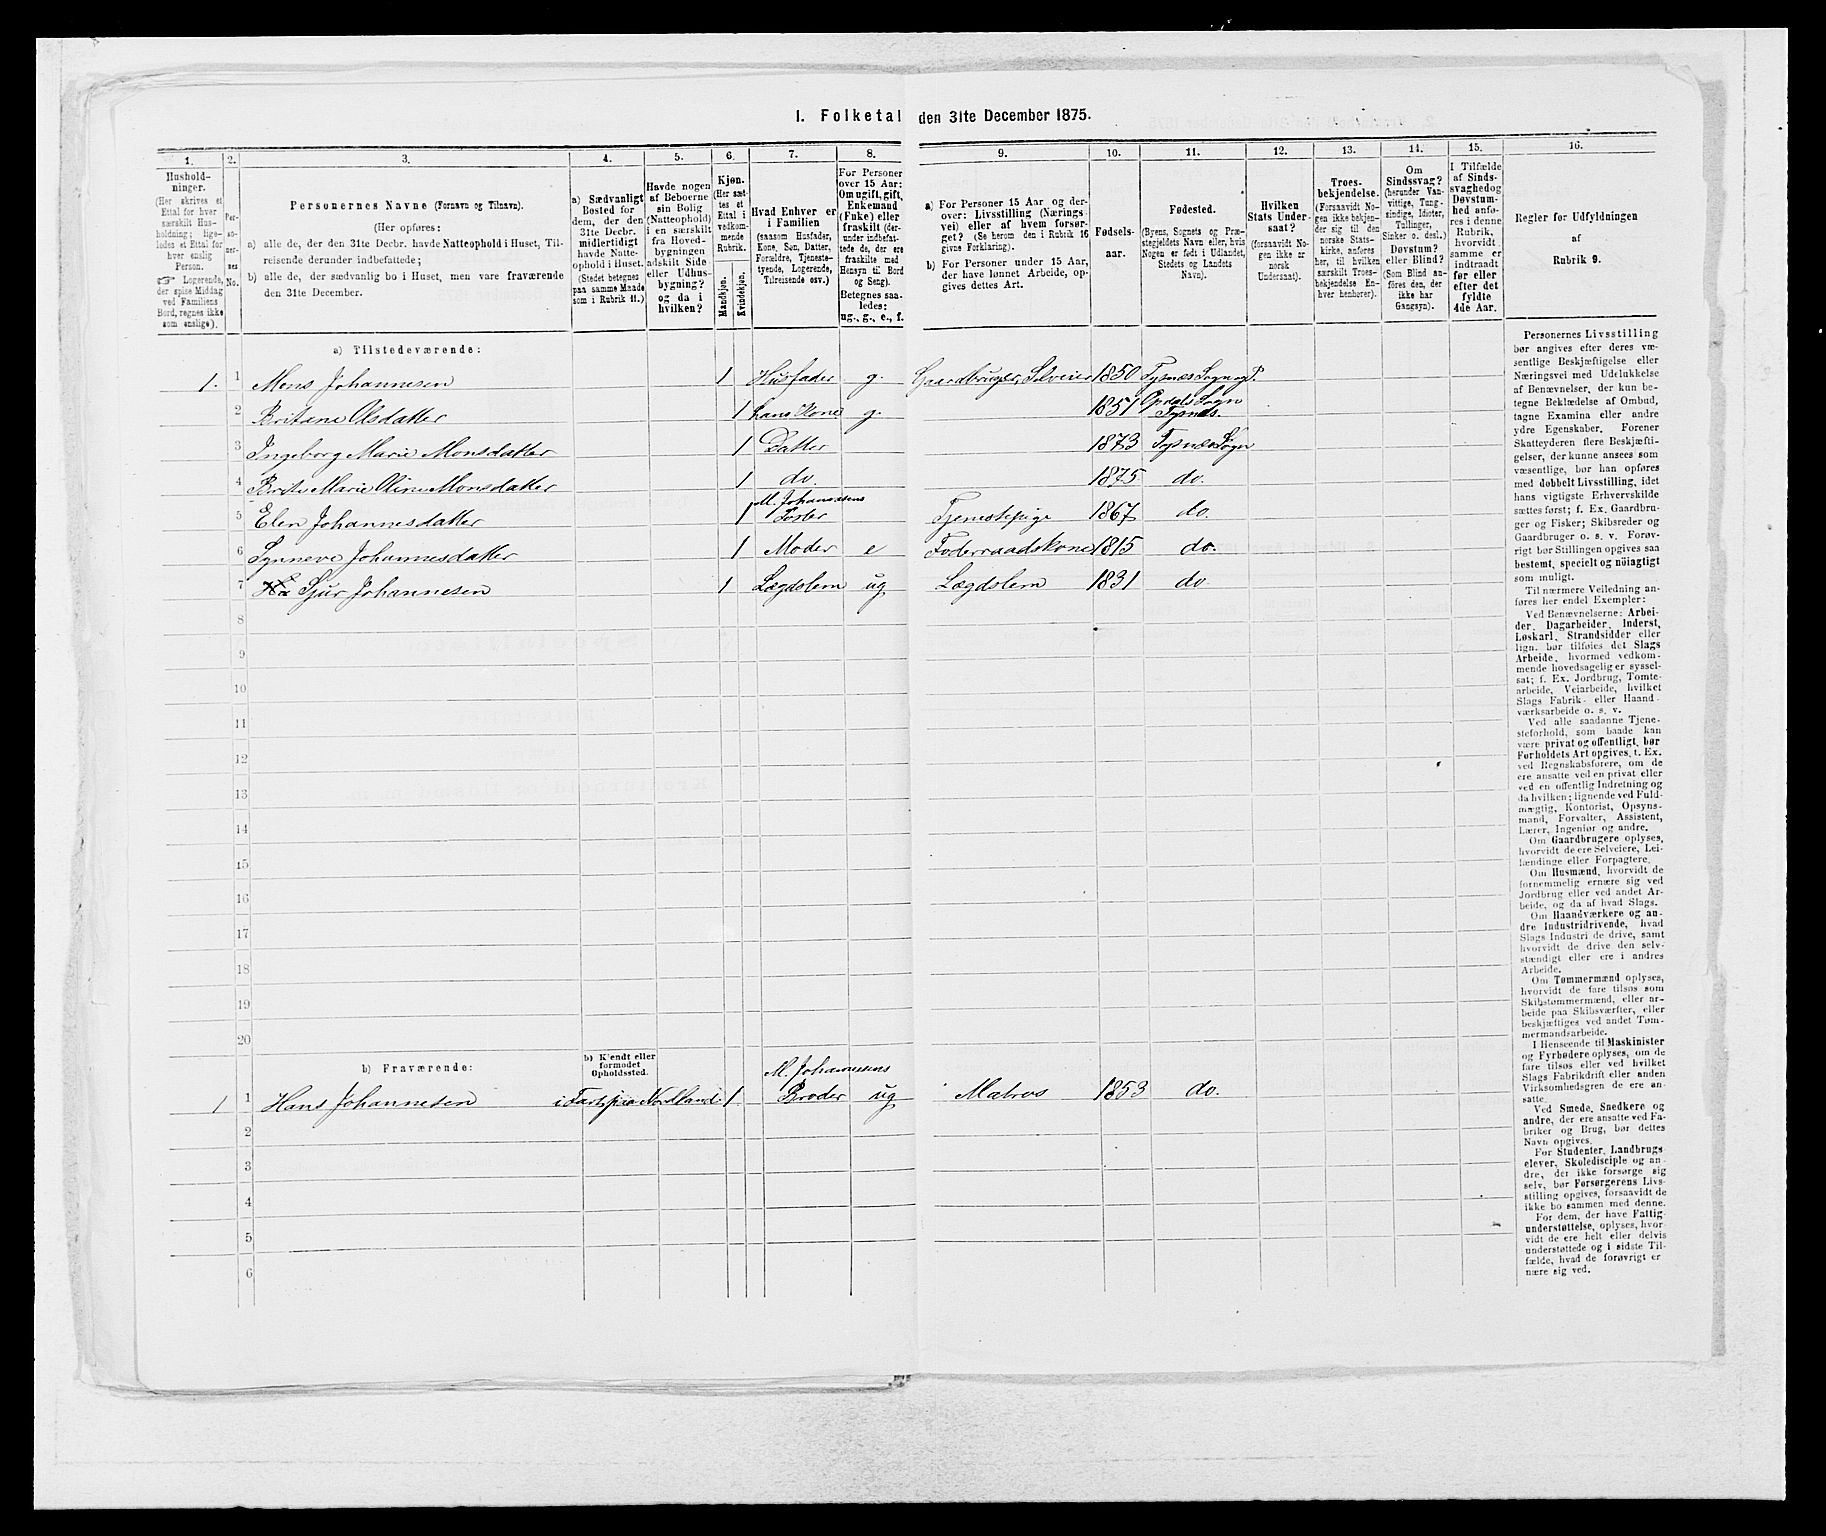 I. Folketal den 31te December 1875.
1. 2. 3. 4. 5. 6. 7. 8. 9. 10. 11. 12. 13. 14. 15. 16.
Hushold-
ninger.
(Her skrives et
Ettal for hver
særskilt Hus-
holdning; lige-
ledes et Ettal for
hver enslig
Person.
☞ Logerende,
der spise Middag
ved Familiens
Bord, regnes ikke
som enslige).
Per-
so-
ner-
nes
No.
Personernes Navne (Fornavn og Tilnavn).
(Her opføres:
a) alle de, der den 31te Decbr. havde Natteophold i Huset, Til-
reisende derunder indbefattede;
b) alle de, der sædvanlig bo i Huset, men vare fraværende
den 31te Decbr.
a) Sædvanligt
Bosted for
dem, der den
31te Decbr.
midlertidigt
havde Natte-
ophold i Huset.
(Stedet betegnes
paa samme Maade
som i Rubrik 11.)
Havde nogen
af Beboerne
sin Bolig
(Natteophold)
i en særskilt
fra Hoved-
bygningen
adskilt Side
eller Udhus-
bygning?
og da i
hvilken?
Kjøn.
(Her sæt-
tes et
Ettal i
vedkom-
mende
Rubrik.
Mandkjøn.
Kvindekjøn.
Hvad Enhver er
i Familien
(saasom Husfader,
Kone, Søn, Datter,
Forældre, Tjeneste-
tyende, Logerende,
Tilreisende osv.)
For Personer
over 15 Aar:
Om ugift, gift,
Enkemand
(Enke) eller
fraskilt (der-
under indbefat-
tede de, der ere
fraskilte med
Hensyn til Bord
og Seng).
Betegnes saa-
ledes:
ug., g., e., f.
a) For Personer 15 Aar og der-
over: Livsstilling (Nærings-
vei) eller af hvem forsør-
get? (Se herom den i Rubrik 16
givne Forklaring).
b) For Personer under 15 Aar,
der have lønnet Arbeide, op-
gives dettes Art.
Fødsels-
aar.
Fødested.
(Byens, Sognets og Præ-
stegjeldets Navn eller, hvis
Nogen er født i Udlandet,
Stedets og Landets
Navn).
Hvilken
Stats Under-
saat?
(forsaavidt No-
gen ikke er
norsk
Undersaat).
Troes-
bekjendelse.
(Forsaavidt No-
gen ikke bekjen-
der sig til den
norske Stats-
kirke, anføres
her, til hvilken
særskilt Troes-
bekjendelse En-
hver henhører).
Om
Sindssvag?
(herunder Van-
vittige, Tung-
sindige, Idioter,
Tullinger,
Sinker o. desl.)
Døvstum?
eller Blind?
(Som Blind an-
føres den, der
ikke har
Gangsyn).
I Tilfælde
af Sinds-
svaghed og
Døvstum-
hed anfø-
res i denne
Rubrik,
hvorvidt
samme er
indtraadt
før eller
efter det
fyldte
4de Aar.
Regler for Udfyldningen
af
Rubrik 9.
a) Tilstedeværende:
1. 1 Mons Johannesen 1 Husfader g. Gaardbruger, Selveier 1850 Tysnes Sogn og P.
2 Britane Olsdatter 1 hans Kone g. 1851 Opdals Sogn
Tysnes.
3 Ingeborg Marie Monsdatter 1 Datter 1873 Tysnes Sogn
4 Brite Marie Oline Monsdatter 1 do. 1875 do.
M. Johannesens
5 Elen Johannesdatter 1 Søster Tjenestepige 1867 do.
6 Synneve Johannesdatter 1 Moder e Foderraadskone 1815 do.
7 Sjur Johannesen 1 Lægdslem ug Lægdslem 1831 do
8
9
10
11
12
13
14
15
16
17
18
19
20
b) Fraværende:
b) Kjendt eller
formodet
Opholdssted.
M. Johannesens
1 1 Hans Johannesen i Fart paa Nordland 1 Broder ug Matros 1853 do.
2
3
4
5
6
Personernes Livsstilling
bør angives efter deres væ-
sentlige Beskjæftigelse eller
Næringsvei med Udelukkelse
af Benævnelser, der kun be-
tegne Beklædelse af Ombud,
tagne Examina eller andre
ydre Egenskaber. Forener
Skatteyderen flere Beskjæfti-
gelser, der kunne ansees som
væsentlige, bør han opføres
med dobbelt Livsstilling, idet
hans vigtigste Erhvervskilde
sættes først; f. Ex. Gaardbru-
ger og Fisker; Skibsreder og
Gaardbruger o. s. v. Forøv-
rigt bør Stillingen opgives saa
bestemt, specielt og nøiagtigt
som muligt.
Til nærmere Veiledning an-
føres her endel Exempler:
Ved Benævnelserne: Arbei-
der, Dagarbeider, Inderst,
Løskarl, Strandsidder eller
lign. bør tilføies det Slags
Arbeide, hvormed vedkom-
mende hovedsagelig er syssel-
sat; f. Ex. Jordbrug, Tomte-
arbeide, Veiarbeide, hvilket
Slags Fabrik- eller Haand-
værksarbeide o. s. v.
Ved alle saadanne Tjene-
steforhold, som baade kan
være privat og offentligt, bør
Forholdets Art opgives, t. Ex.
ved Regnskabsførere, om de
ere ansatte ved en privat eller
ved en offentlig Indretning og
da hvilken; lignende ved Fuld-
mægtig, Kontorist, Opsyns-
mand, Forvalter, Assistent,
Lærer, Ingeniør og andre.
Om Gaardbrugere oplyses,
hvorvidt de ere Selveiere, Lei-
lændinge eller Forpagtere.
Om Husmænd, hvorvidt de
fornemmelig ernære sig ved
Jordbrug eller ved andet Ar-
beide, og da af hvad Slags.
Om Haandværkere og an-
dre Industridrivende, hvad
Slags Industri de drive, samt
hvorvidt de drive den selv-
stændigt eller ere i andres
Arbeide.
Om Tømmermænd oplyses,
hvorvidt de fare tilsøs som
Skibstømmermænd, eller ar-
beide paa Skibsværfter, eller
beskjæftiges ved andet Tøm-
mermandsarbeide.
I Henseende til Maskinister
og Fyrbødere oplyses, om de
fare tilsøs eller ved hvilket
Slags Fabrikdrift eller anden
Virksomhedsgren de ere an-
satte.
Ved Smede, Snedkere og
andre, der ere ansatte ved Fa-
briker og Brug, bør dettes
Navn opgives.
For Studenter, Landbrugs
elever, Skoledisciple og an-
dre, der ikke forsørge sig
selv, bør Forsørgerens Livs-
stilling opgives, forsaavidt de
ikke bo sammen med denne.
For dem, der have Fattig-
understøttelse, oplyses, hvor-
vidt de ere helt eller delvis
understøttede og i sidste Til-
fælde, hvad de forøvrigt er
nære sig ved.